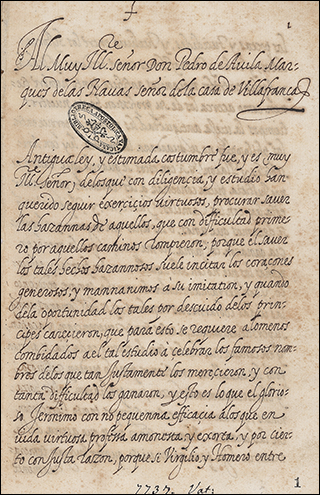 1
Al Muy Ill.re Señor Don Pedro de Auila Mar-
ques de las Nauas Señor de la casa de Villafranca
Antigua ley, y estimada costumbre fue, y es, muy
Ill.re Señor, de los que con diligencia, y estudio han
querido seguir exercicios virtuosos, procurar sauer
las hazannas de aquellos, que con difficultad prime-
ro por aquellos caminos rompieron, porque el sauer
los tales hechos hazannosos suele incitar los coraçones
generosos, y mannanimos a su imitacion, y quando
de la oportunidad los tales por descuido de los prin-
cipes carecieron, que para esto se requiere, a lo menos
combidados a el tal estudio a celebrar los famosos nom-
bres de los que tan justamente los merecieron, y con
tanta difficultad los ganaron, y esto es lo que el glorio-
so Jeronimo con no pequenna efficacia a los que en
vida virtuosa professa amonesta, y exorta, y por cier-
to con justa razon, porque si Virgilio, y Homero entre
7737. Vat:
1